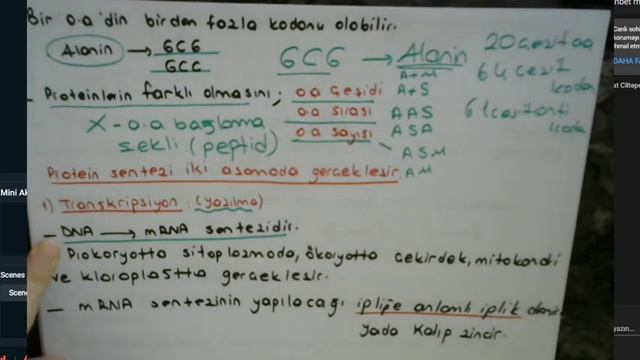 Bir a.a'din birden fazla kodonu olabilir.
Alanin → GCG
GCC
GCG → Alanin
20 çeşit aa
64 çeşit kodon
A+M
- Proteinlerin farklı olmasını; a.a çeşidi A+S
a.a sırası AAS
a.a sayısı ASA
ASM
AM
X - a.a bağlama
şekli (peptid)
Protein sentezi iki aşamada gerçekleşir.
1) Transkripsiyon: (yazılma)
- DNA → mRNA sentezidir.
Prokaryotta sitoplazmada, ökaryotta çekirdek, mitokondi
ve kloroplastta gerçekleşir.
- mRNA sentezinin yapılacağı ipliğe anlamlı iplik denir
yada kalıp zincir.
Mini Ak
Scenes
Scen
Canlı
DAHA FA
at Ciltepe
yazın...